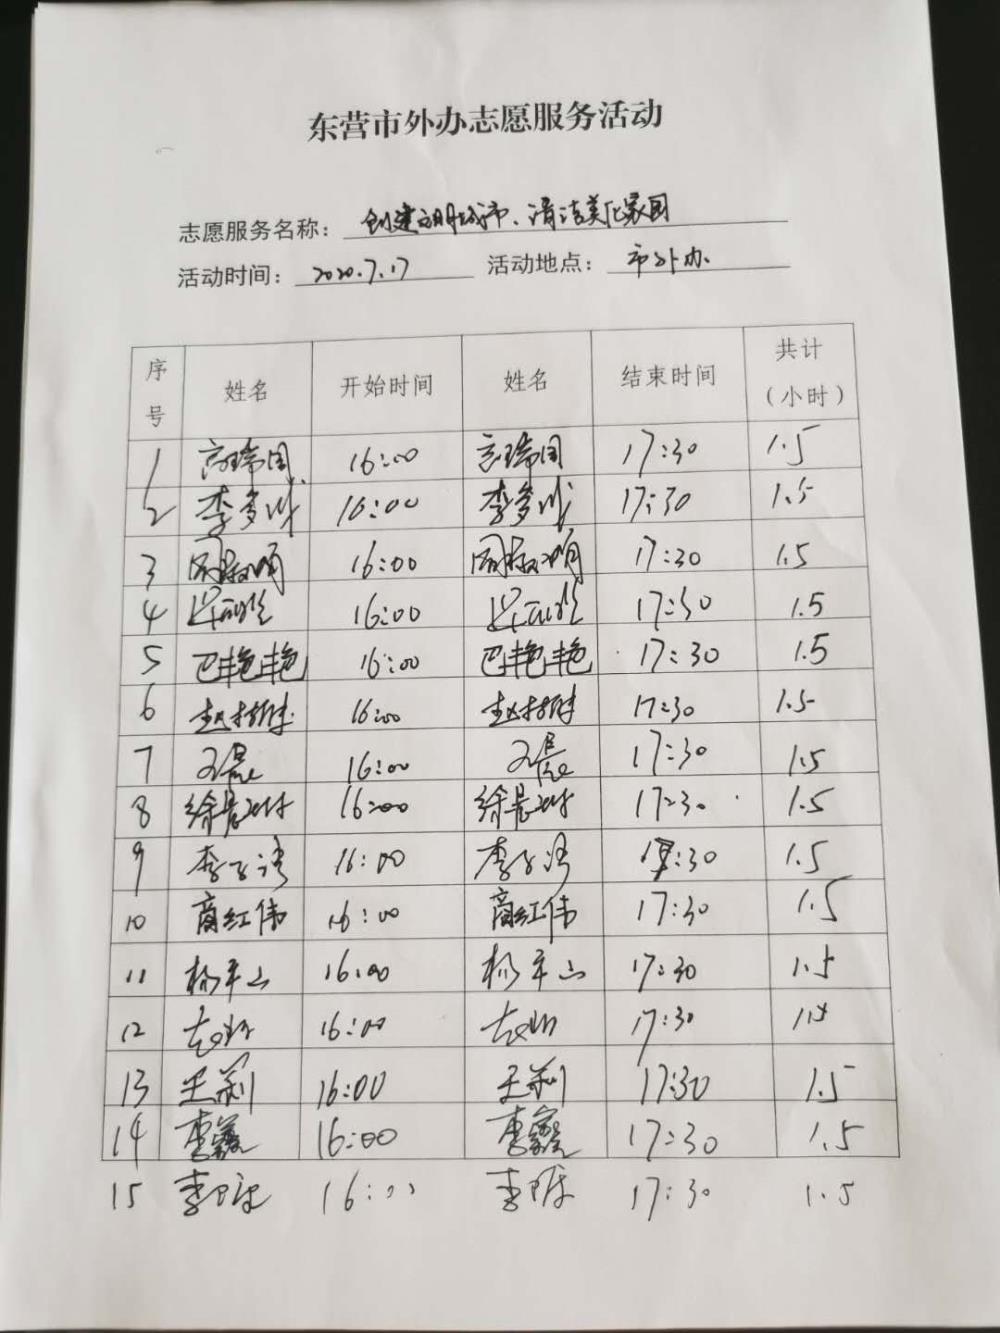 东营市外办志愿服务活动
志愿服务名称：创建文明城市、清洁美化家园
活动时间：2020.7.17 活动地点：市外办
序号 姓名 开始时间 姓名 结束时间 共计（小时）
1 高瑞国 16:00 高瑞国 17:30 1.5
2 李多 16:00 李多 17:30 1.5
3 周 16:00 周 17:30 1.5
4 16:00 17:30 1.5
5 巴艳艳 16:00 巴艳艳 17:30 1.5
6 赵 16:00 赵 17:30 1.5
7 16:00 17:30 1.5
8 徐 16:00 徐 17:30 1.5
9 李 16:00 李 17:30 1.5
10 商红伟 16:00 商红伟 17:30 1.5
11 杨平山 16:00 杨平山 17:30 1.5
12 16:00 17:30
13 王莉 16:00 王莉 17:30 1.5
14 李鑫 16:00 李鑫 17:30 1.5
15 李 16:00 李 17:30 1.5